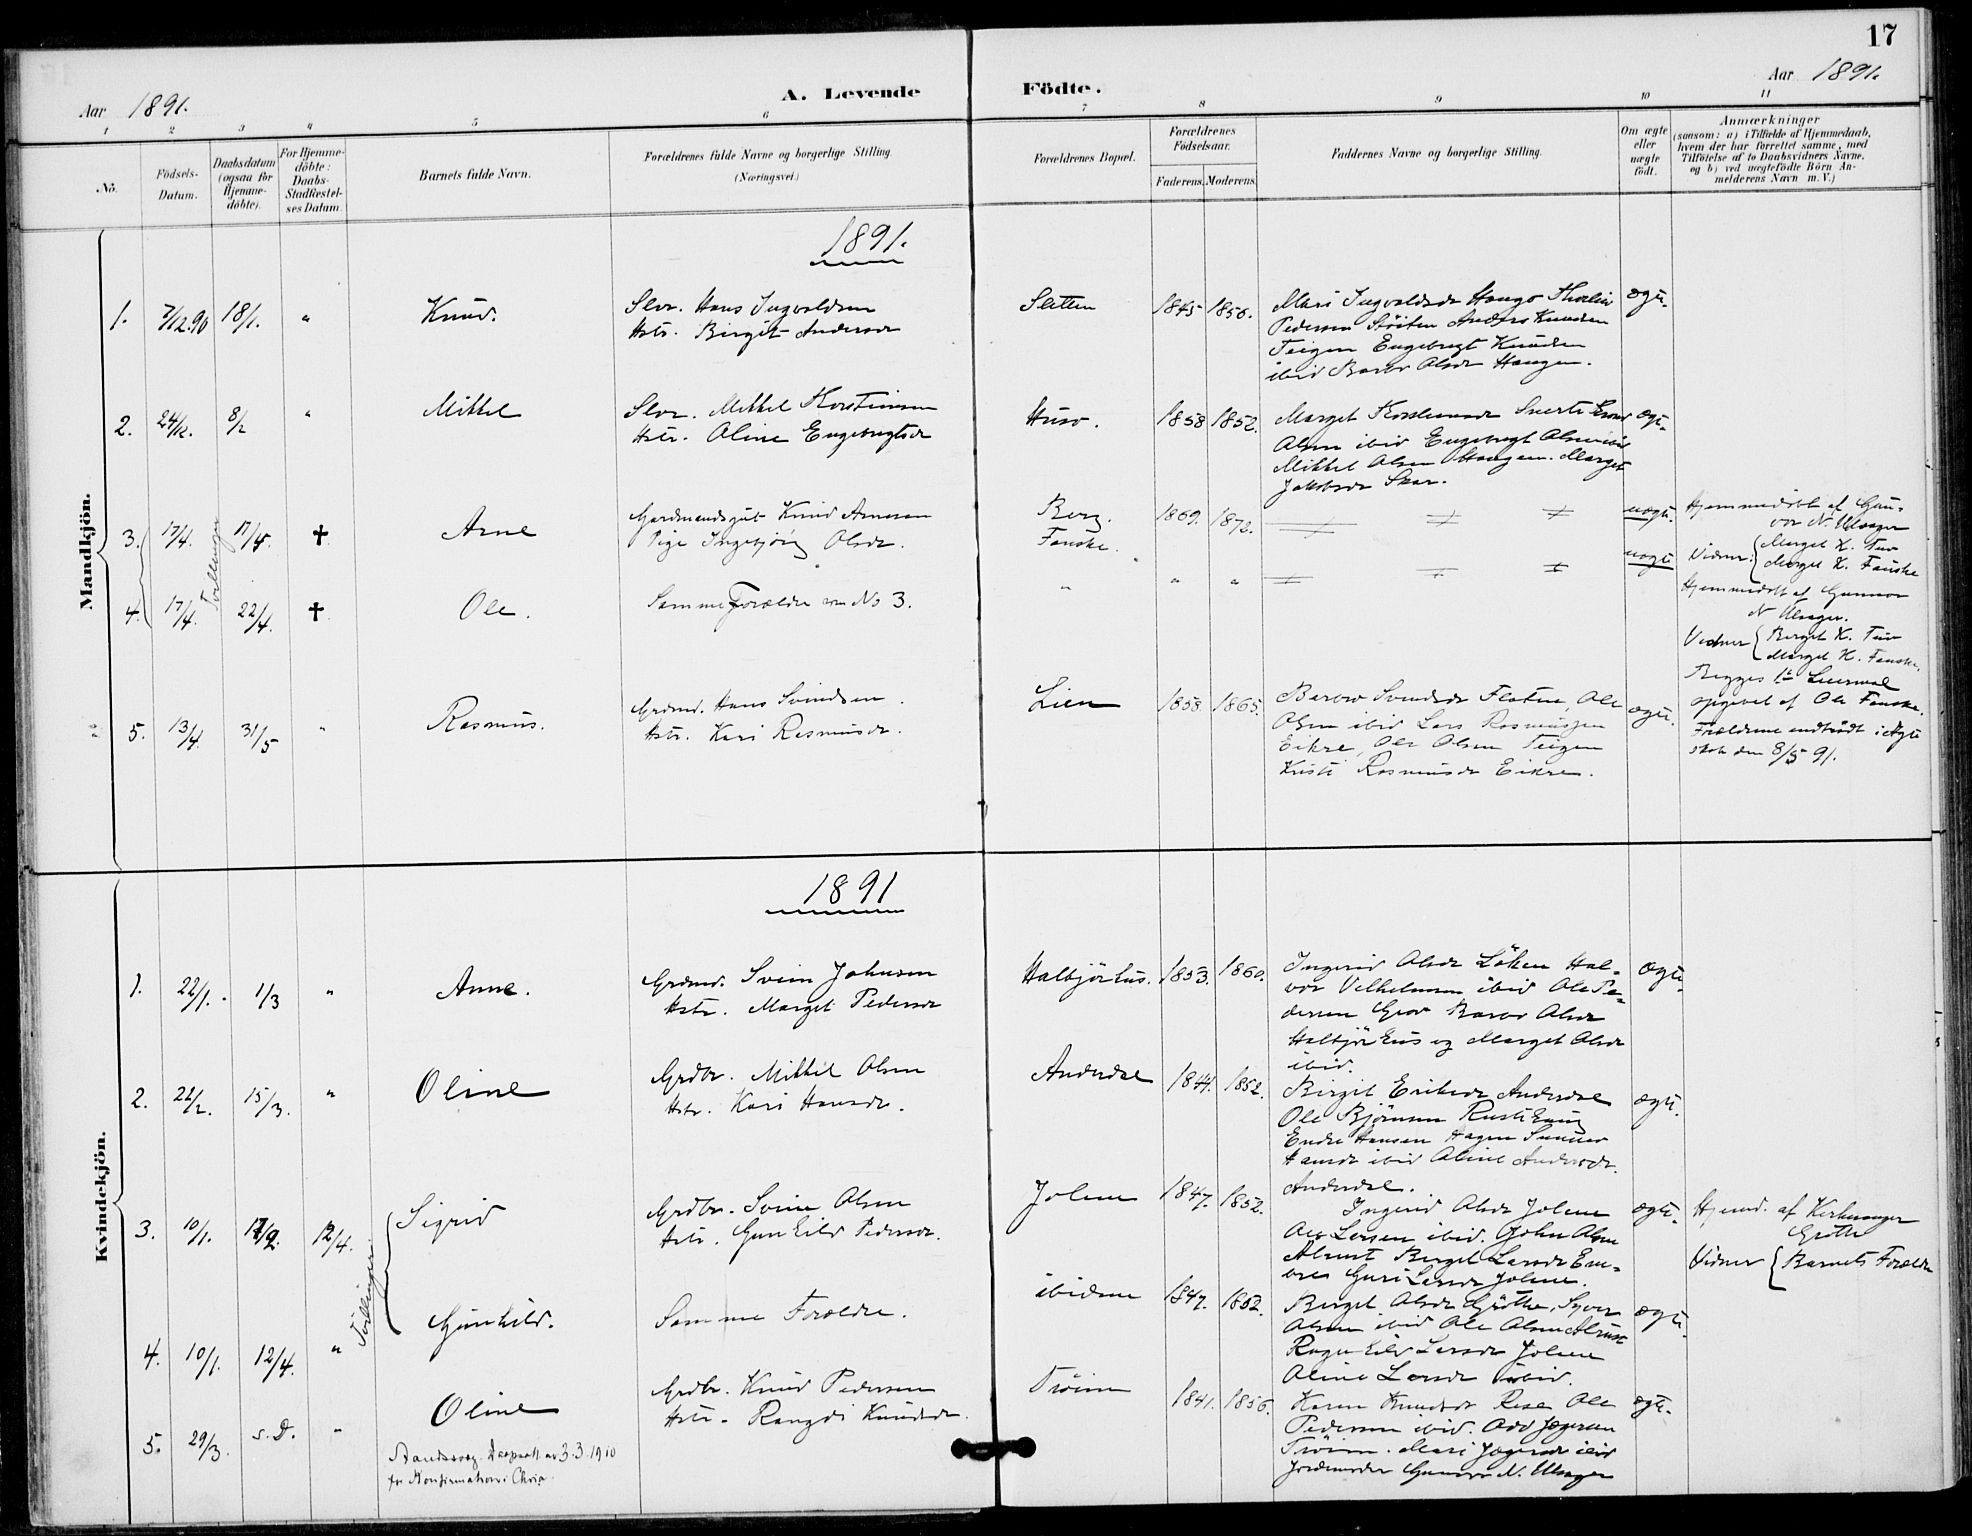 17
Aar 1891.
A. Levende Födte.
Aar 1891.
1 2 3 4 5 6 7 8 9 10 11
No.
Födsels-
Datum.
Daabsdatum
(ogsaa for
Hjemme-
döbte).
For Hjemme-
döbte:
Daabs-
Stadfæstel-
ses Datum.
Barnets fulde Navn.
Forældrenes fulde Navne og borgerlige Stilling.
(Næringsvei.)
Forældrenes Bopæl.
Forældrenes
Födselsaar.
Faderens. Moderens.
Faddernes Navne og borgerlige Stilling.
Om ægte
eller
uægte
födt.
Anmærkninger
(saasom: a) i Tilfælde af Hjemmedaab,
hvem der har forrettet samme, med
Tilföielse af to Daabsvidners Navne,
og b) ved uægtefödte Börn An-
melderens Navn m. V.)
Mandkjön.
1891.
1. 7/12.90 18/1. " Knud.
Slvr. Hans Ingvaldsen
Hstr. Birgit Andersdr
Sletten 1845 1856.
Mari Ingvaldsdr Haugo
Pedersen Stöiten Anders Knudsen
Teigen Engebregt Knudsen
ibid Barbo Olsdr Haugen.
ægte.
2. 24/12. 8/2 " Mikkel
Slvr. Mikkel Torstensen
Hstr. Oline Engebregtsdr
Huso. 1858 1852.
Marget
Olsen ibid Engebregt Olsen ibid
Mikkel Olsen Haugen. Marget
Jakobsdr Skar.
ægte.
3. 17/4. 17/4. † Arne
Gardmandsgut Knud Arnesen
Pige Ingebjörg Olsdr.
Berg. 1869. 1872.
Fauske.
uægte.
Hjemmedöbt af Gun-
vor N. Ulsager
Vidner: Marget K. Tuv
Marget K. Fauske
Tvillinger
4. 17/4. 22/4. † Ole.
Samme Forældre som No 3.
" " "
uægte
Hjemmedöbt af Gunvor
N Ulsager.
Vidner Birget K. Tuv
Marget K. Fauske.
Begges 1ste Leiermaal
opgivet af Ole Fauske.
Forældrene indtraadt i Ægte
skab den 8/5 91.
5. 13/4. 31/5 " Rasmus.
Grdmd. Hans Svendsen.
Hstr. Kari Rasmusdr.
Lien 1858. 1865.
Barbro Svendsdr Flaten, Ole
Olsen ibid Lars Rasmussen
Eikre, Ole Olsen Teigen
Kristi Rasmusdr Eikre.
ægte.
Kvindekjön.
1891
1. 22/1. 1/3 " Anne.
Grdmd. Svein Johnsen
Hstr. Marget Pedersdr
Halbjörhus. 1853. 1860.
Ingerid Olsdr Löken Hal-
vor Vilhelmsen ibid Ole Pe-
dersen Grov Barbo Olsdr
Halbjörhus og Marget Olsdr
ibid.
Ægte.
2. 22/2. 15/3. " Oline
Grdbr. Mikkel Olsen
Hstr. Kari Hansdr.
Anderdal 1844. 1852.
Birgit Eriksdr Anderdal
Ole Björnsen Rustehaug
Endre Hansen Hagen Sunnev
Hansdr ibid Oline Andersdr.
Anderdal.
ægte.
3. 10/1. 12/4. Sigrid
Grdbr. Svein Olsen
Hstr. Gunhild Pedersdr.
Jolene 1847. 1852.
Ingerid Olsdr Jolene
Ole Larsen ibid. John Olsen
Alrust Birget Larsdr
Guri Larsdr Jolene.
ægte.
Hjemd. af Kirkesanger
Gröthe
Vidner Barnets Forældre
Tvillinger
4. 10/1. 12/4. " Gunhild.
Samme Forældre.
ibidem 1847. 1852.
Birget Olsdr Gröthe, Syver
Olsen ibid Ole Olsen Alrust
Ragnhild Larsdr Jolene
Oline Larsdr ibid.
ægte.
5. 29/3. s.D. " Oline
Grdbr. Knud Pedersen
Hstr. Rangdi Knudsdr.
Tröim 1841. 1856.
Karen Knudsdr Rese Ole
Pedersen ibid. Odd Jegersen
Tröim. Mari Jegersdr ibid
Jordmoder Gunvor N. Ulsager
ægte.
Daapsatt. av 3.3.1910
for Konfirmation i Chria.